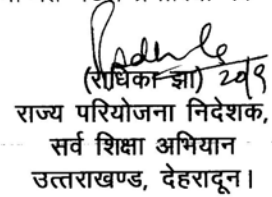 (राधिका झा)
राज्य परियोजना निदेशक,
सर्व शिक्षा अभियान
उत्तराखण्ड, देहरादून।